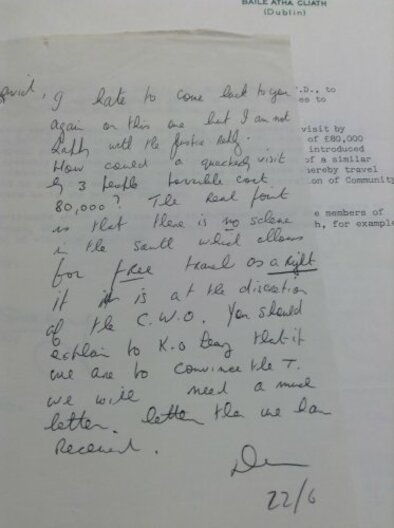 BAILE ATHA CLIATH
(Dublin)
.D., to
es to
visit by
of £80,000
introduced
of a similar
hereby travel
on of Community
e members of
h, for example
I hate to come back to you
again on this one but I am not
happy with the Justice reply.
How could a quarterly visit
by 3 people possible cost
80,000? The real point
is that there is no scheme
in the south which allows
for free travel as a right
it is at the discretion
of the C.W.O. You should
explain to K. O'Leary that if
we are to convince the T.
we will need a much
letter. letter than we have
Received.
22/6